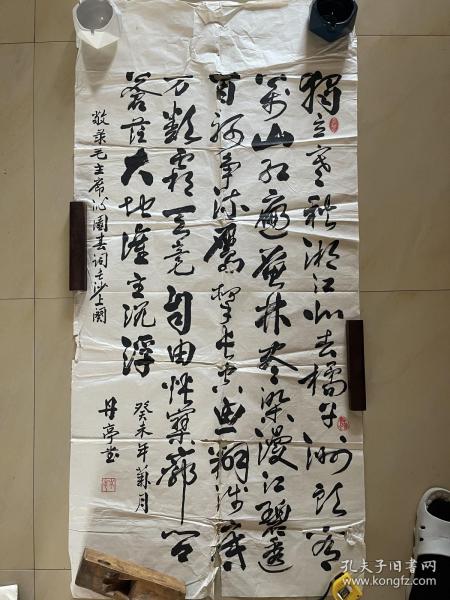 獨立寒秋湘江北去橘子洲頭看
萬山红遍層林尽染漫江碧透
百舸争流鷹擊长空鱼翔浅底
万類霜天竞自由怅寥廓问
蒼茫大地谁主沉浮
敬录毛主席沁園春词长沙上阕
癸未年菊月
丹亭书
孔夫子旧书网
www.kongfz.com